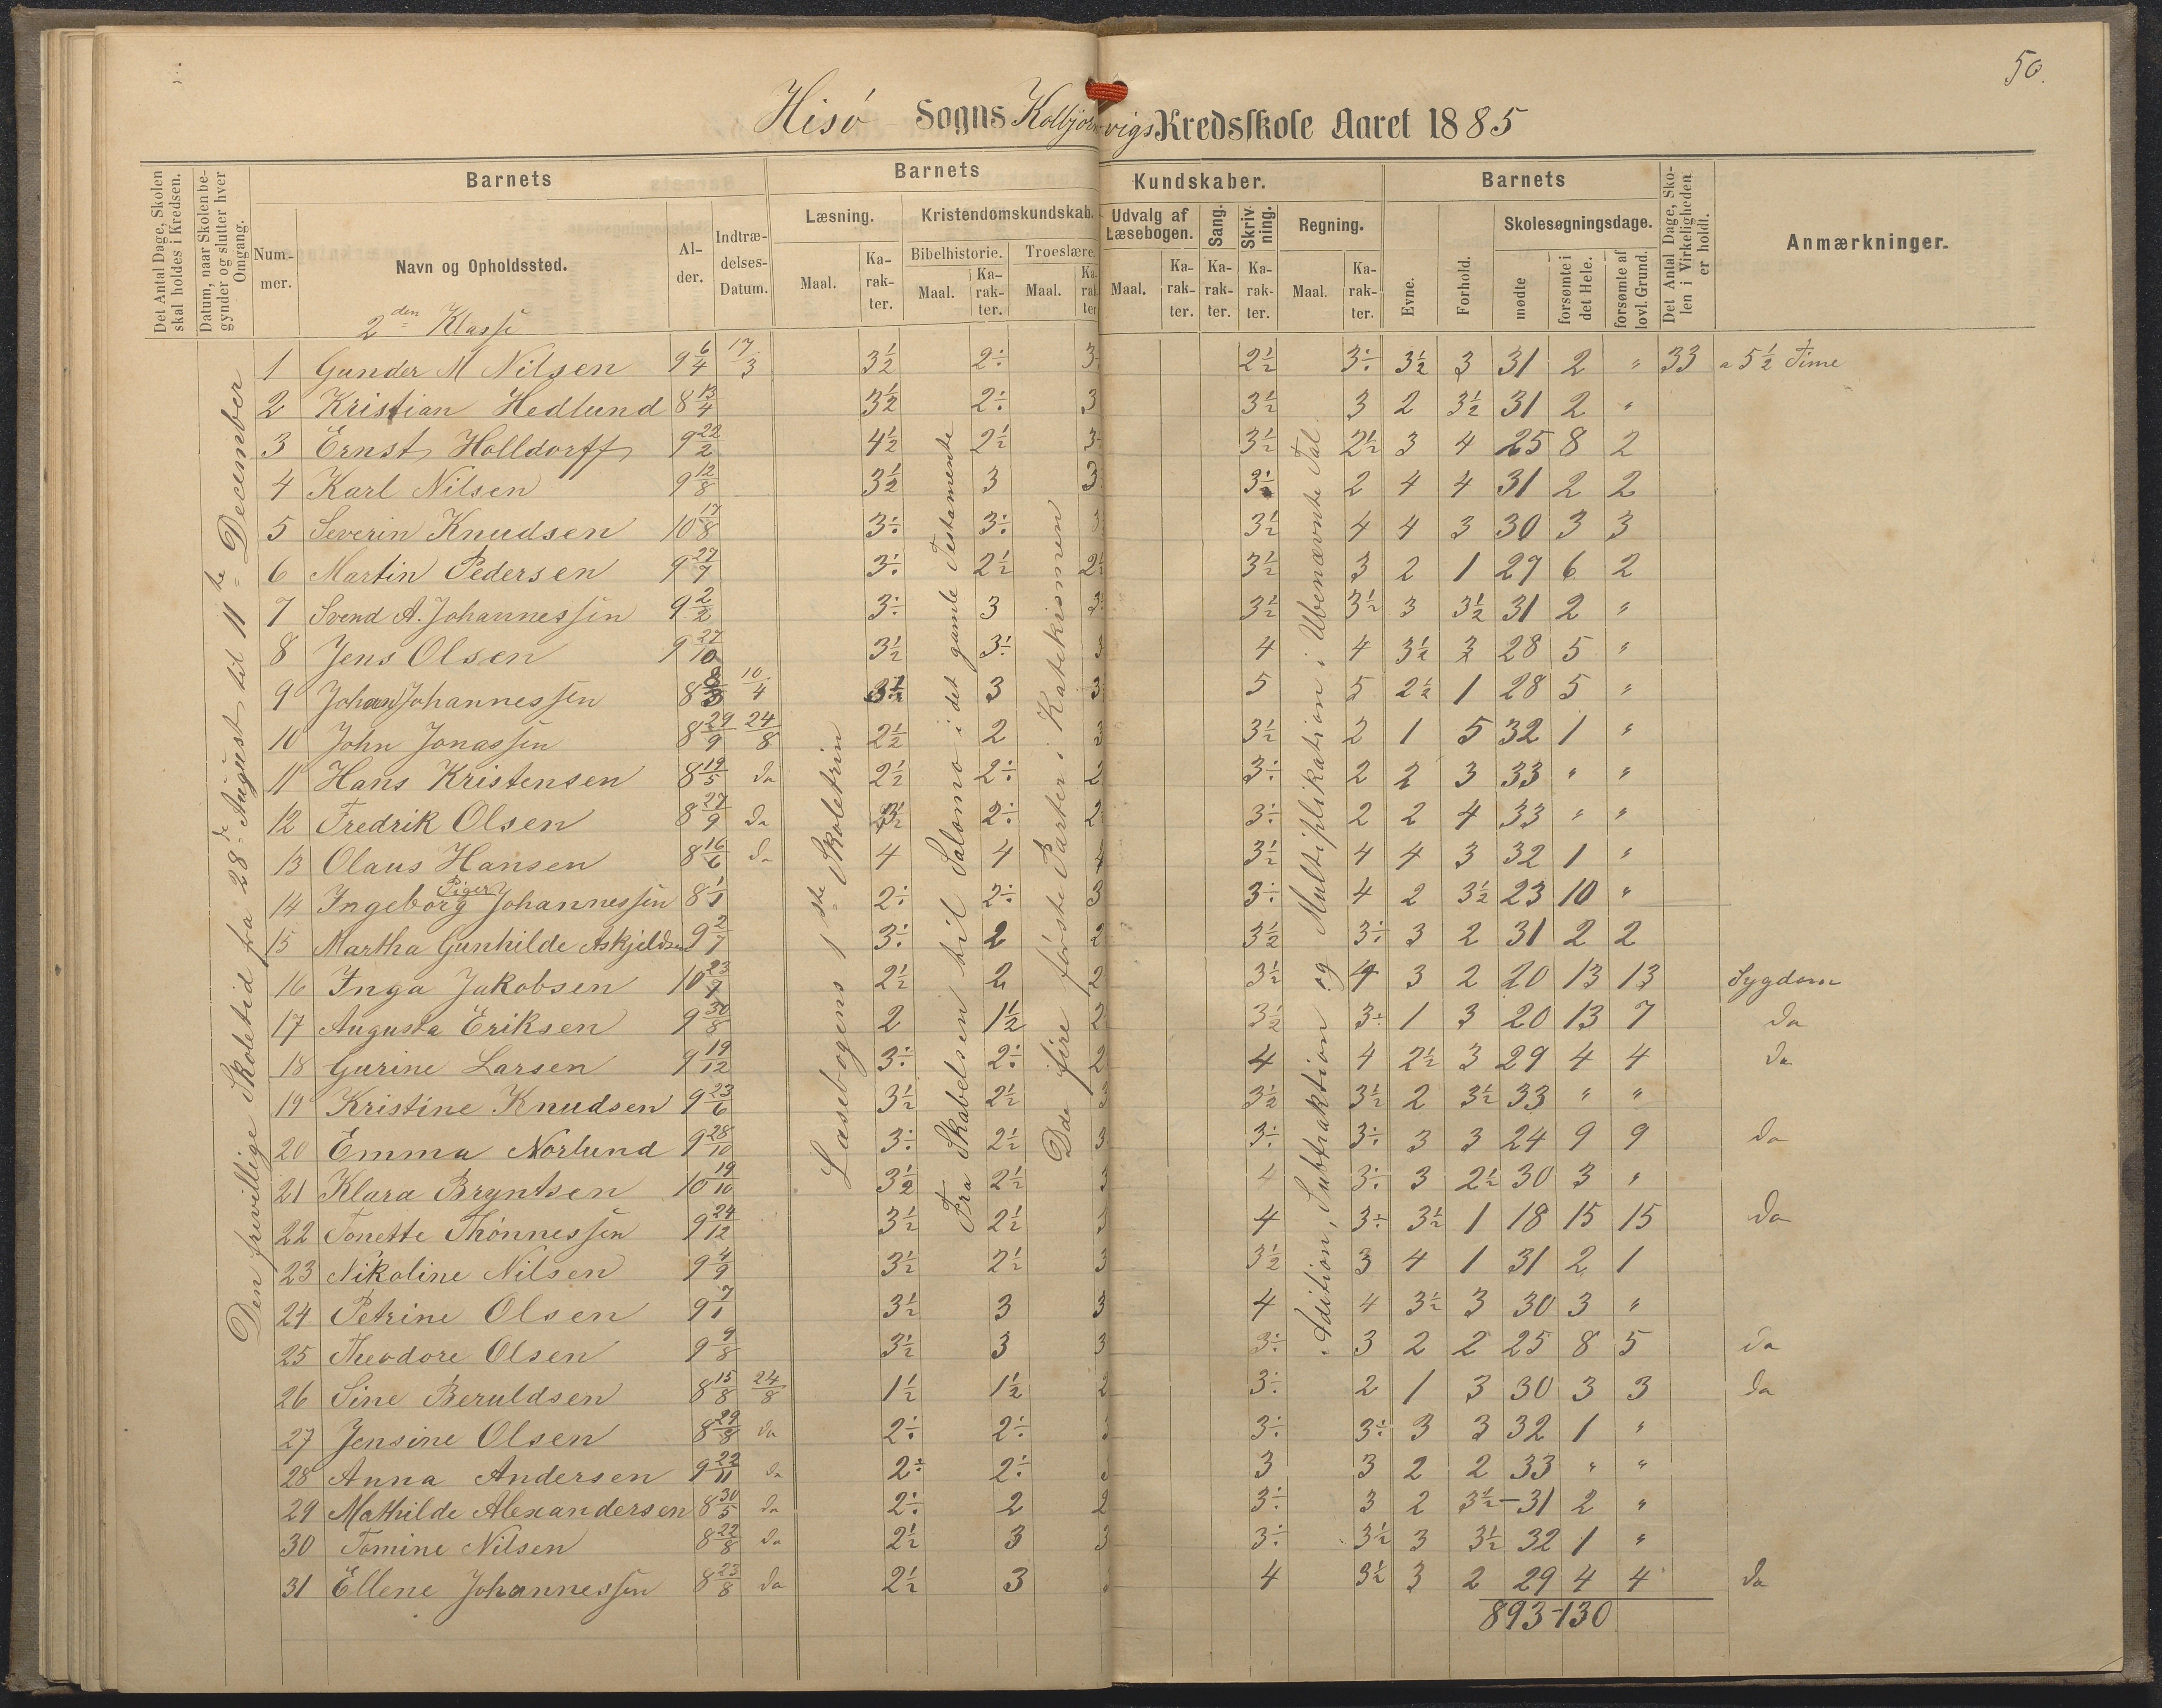 50.
Hisö Sogns Kolbjörnvigs Kredsskole Aaret 1885
Det Antal Dage, Skolen skal holdes i Kredsen.
Datum, naar Skolen begynder og slutter hver Omgang.
Barnets
Nummer.
Navn og Opholdssted.
Alder.
Indtrædelses-Datum.
Barnets Kundskaber.
Læsning.
Maal.
Karakter.
Kristendomskundskab.
Bibelhistorie.
Maal.
Karakter.
Troeslære.
Maal.
Karakter.
Udvalg af Læsebogen.
Maal.
Karakter.
Sang.
Karakter.
Skrivning.
Karakter.
Regning.
Maal.
Karakter.
Barnets
Evne.
Forhold.
Skolesøgningsdage.
mødte
forsømte i det Hele.
forsømte af lovl. Grund.
Det Antal Dage, Skolen i Virkeligheden er holdt.
Anmærkninger.
2den Klasse
Den frivillige Skoletid fra 28de August til 11te December
Læsebogens 1ste Skoletrin
Fra Skabelsen til Salomo i det gamle Testamente
De fire første Parter i Katekismen
Adition, Subtraktion og Multiplikation i Ubenævnte Tal
1 Gunder M Nilsen 9 6/4 17/3 3½ 2÷ 3 2½ 3÷ 3½ 3 31 2 " 33 a 5½ Time
2 Kristian Hedlund 8 13/4 3½ 2÷ 3 3½ 3 2 3½ 31 2 "
3 Ernst Holldorff 9 22/2 4½ 2½ 3÷ 3½ 2½ 3 4 25 8 2
4 Karl Nilsen 9 12/8 3½ 3 3 3½ 2 4 4 31 2 2
5 Severin Knudsen 10 17/8 3÷ 3÷ 3 3½ 4 4 3 30 3 3
6 Martin Pedersen 9 27/7 3÷ 2½ 2½ 3½ 3 2 1 27 6 2
7 Svend A. Johannessen 9 2/2 3÷ 3 3÷ 3½ 3½ 3 3½ 31 2 "
8 Jens Olsen 9 27/10 3½ 3÷ 3 4 4 3½ 3 28 5 "
9 Johan Johannessen 8 10/4 3½ 3 3 5 5 2½ 1 28 5 "
10 John Jonassen 8 29/9 24/8 2½ 2 3 3½ 2 1 5 32 1 "
11 Hans Kristensen 8 19/5 da 2½ 2÷ 2 3÷ 2 2 3 33 " "
12 Fredrik Olsen 8 27/9 da 2÷ 2 3÷ 2 2 4 33 " "
13 Olaus Hansen 8 16/6 da 4 4 4 3½ 4 4 3 32 1 "
Piger
14 Ingeborg Johannessen 8 1/1 2÷ 2÷ 3 3÷ 4 2 3½ 23 10 "
15 Martha Gunhilde Askjeldsen 9 2/7 3÷ 2 2 3½ 3÷ 3 2 31 2 2
16 Inga Jakobsen 10 23/7 2½ 2 2 3½ 4 3 2 20 13 13 Sygdom
17 Augusta Eriksen 9 30/8 2 1½ 2 3½ 3÷ 1 3 20 13 7 da
18 Gurine Larsen 9 19/12 3÷ 2÷ 2 4 4 2½ 3 29 4 4 da
19 Kristine Knudsen 9 23/6 3½ 2½ 3 3½ 3½ 2 3½ 33 " "
20 Emma Norlund 9 28/10 3÷ 2½ 3 3÷ 3÷ 3 3 24 9 9 da
21 Klara Bryntsen 10 19/10 3½ 2½ 3 4 3÷ 3 2½ 30 3 "
22 Tonette Thönnessen 9 24/12 3½ 2½ 3 4 3÷ 3½ 1 18 15 15 da
23 Nikoline Nilsen 9 4/9 3½ 2½ 3 3½ 3 4 1 31 2 1
24 Petrine Olsen 9 7/1 3½ 3 3 4 4 3½ 3 30 3 "
25 Theodore Olsen 9 9/8 3½ 3 3 3÷ 3 2 2 25 8 5 da
26 Sine Beruldsen 8 15/8 24/8 1½ 1½ 2 3÷ 2 1 3 30 3 3 da
27 Jensine Olsen 8 29/8 da 2÷ 2÷ 3 3÷ 3÷ 3 3 32 1 "
28 Anna Andersen 9 22/11 da 2÷ 2÷ 3 3 3 2 2 33 " "
29 Mathilde Alexandersen 8 30/5 da 2÷ 2 2 3÷ 3 2 3½ - 31 2 "
30 Tomine Nilsen 8 22/8 da 2½ 3 3 3÷ 3½ 3 3½ 32 1 "
31 Ellene Johannessen 8 23/8 da 2½ 3 3 4 3½ 3 2 29 4 4 da
893-130